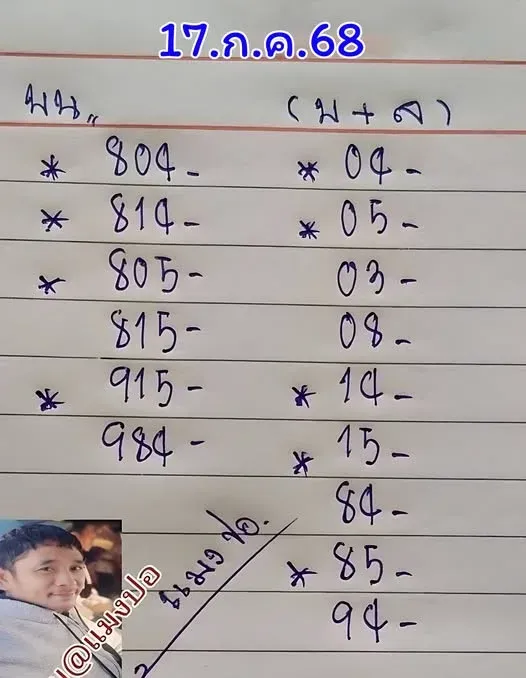 17.ก.ค.68
บน,, (บ + ล)
* 804- * 04-
* 814- * 05-
* 805- 03-
815- 08-
* 915- * 14-
984- * 15-
84-
* 85-
94-
แมงปอ.
@แมงปอ